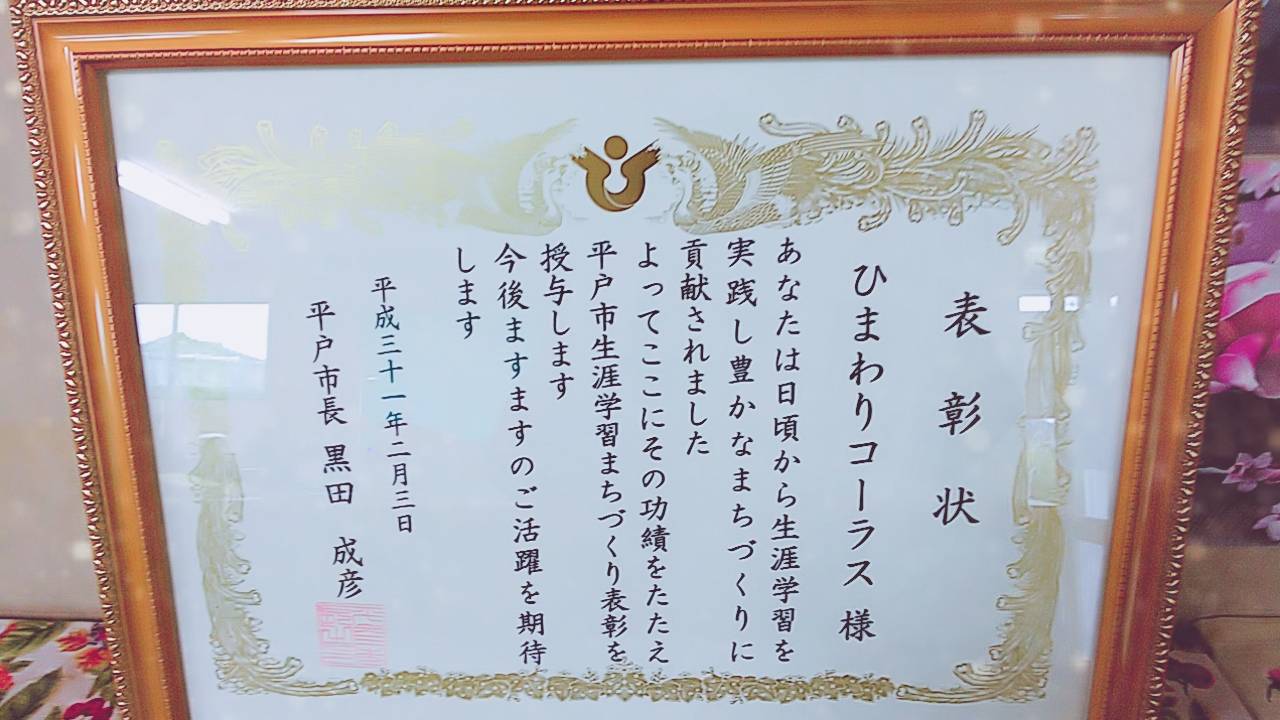 表彰状
ひまわりコーラス様
あなたは日頃から生涯学習を
実践し豊かなまちづくりに
貢献されました
よってここにその功績をたたえ
平戸市生涯学習まちづくり表彰を
授与します
今後ますますのご活躍を期待
します
平成三十一年二月三日
平戸市長 黒田 成彦